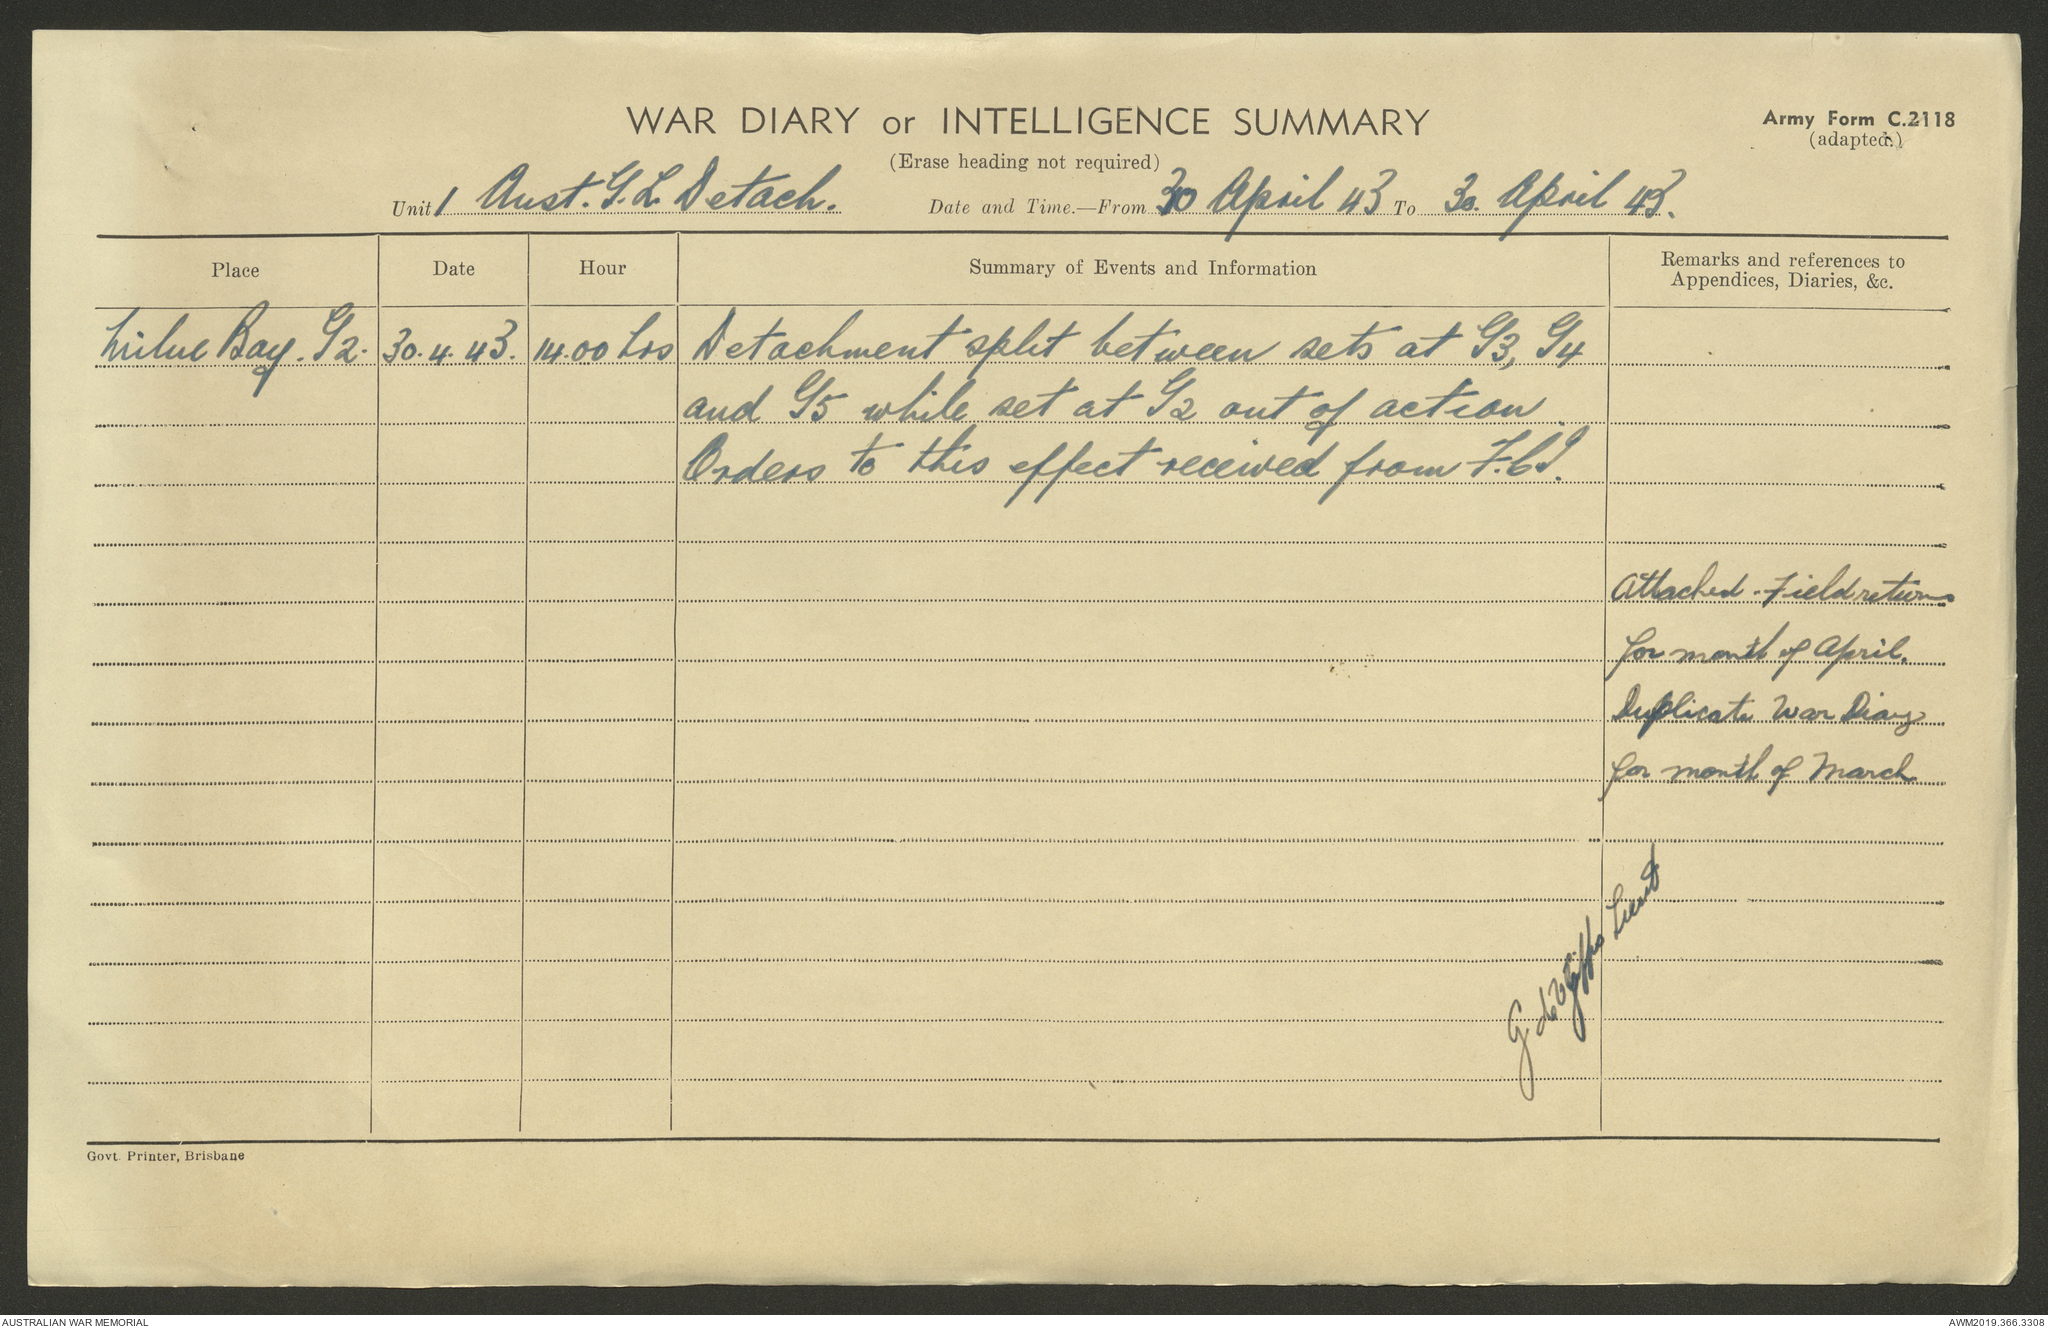 WAR DIARY or INTELLIGENCE SUMMARY
Army Form C.2118
(adapted.)
(Erase heading not required)
Unit 1 Aust. G.L. Detach. Date and Time.—From 30 April 43 To 30. April 43.
Place Date Hour Summary of Events and Information Remarks and references to
Appendices, Diaries, &c.
Milne Bay. G2. 30.4.43. 14.00 hrs Detachment split between sets at G3, G4
and G5 while set at G2 out of action.
Orders to this effect received from F.C.I.
Attached - Field returns
for month of April.
Duplicate War Diary
for month of March
G. de V Gipps Lieut
Govt. Printer, Brisbane
AUSTRALIAN WAR MEMORIAL
AWM2019.366.3308